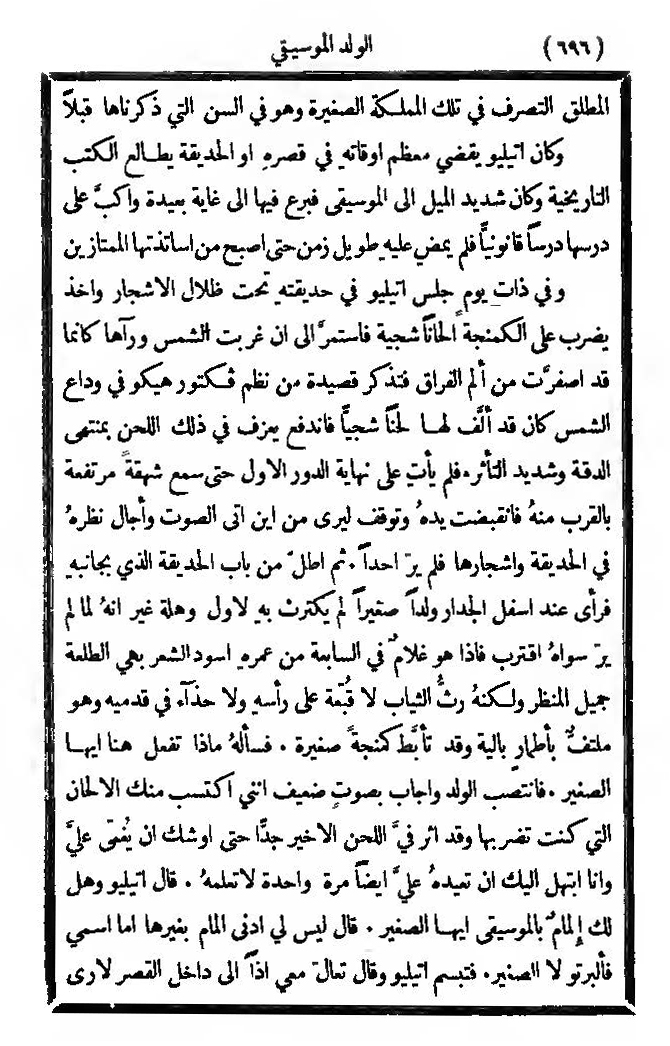 (٦٩٦) الولد الموسيقي
المطلق التصرف في تلك المملكة الصغيرة وهو في السن التي ذكرناها قبلاً
وكان اتيليو يقضي معظم اوقاتهِ في قصرهِ او الحديقة يطالع الكتب
التاريخية وكان شديد الميل الى الموسيقى فبرع فيها الى غاية بعيدة واكبَّ على
درسها درساً قانونيّاً فلم يمض عليهِ طويل زمن حتى اصبح من اساتذتها الممتازين
وفي ذات يومٍ جلس اتيليو في حديقتهِ تحت ظلال الاشجار واخذ
يضرب على الكمنجة الحاناً شجية فاستمرَّ الى ان غربت الشمس ورآها كانما
قد اصفرَّت من ألم الفراق فتذكر قصيدة من نظم ڤكتور هيكو في وداع
الشمس كان قد ألَّف لها لحناً شجيّاً فاندفع يعزف في ذلك اللحن بمنتهى
الدقة وشديد التأثر. فلم يأتِ على نهاية الدور الاول حتى سمع شهقةً مرتفعة
بالقرب منهُ فانقبضت يدهُ وتوقف ليرى من اين اتى الصوت وأجال نظرهُ
في الحديقة واشجارها فلم يرَ احداً. ثم اطلَّ من باب الحديقة الذي بجانبهِ
فرأى عند اسفل الجدار ولداً صغيراً لم يكترث بهِ لاول وهلة غير انهُ لما لم
يرَ سواهُ اقترب فاذا هو غلامٌ في السابعة من عمرهِ اسود الشعر بهي الطلعة
جميل المنظر ولكنهُ رثُّ الثياب لا قُبَّعة على رأسهِ ولا حذآء في قدميهِ وهو
ملتفٌّ بأطمارٍ بالية وقد تأبَّط كمنجةً صغيرة . فسألهُ ماذا تفعل هنا ايها
الصغير . فانتصب الولد واجاب بصوتٍ ضعيف انني اكتسب منك الالحان
التي كنت تضربها وقد اثر فيَّ اللحن الاخير جدًّا حتى اوشك ان يُغمى عليَّ
وانا ابتهل اليك ان تعيدهُ عليَّ ايضاً مرة واحدة لاتعلمهُ . قال اتيليو وهل
لك إلمامٌ بالموسيقى ايها الصغير . قال ليس لي ادنى المام بغيرها اما اسمي
فألبرتو لا الصغير. فتبسم اتيليو وقال تعالَ معي اذاً الى داخل القصر لارى